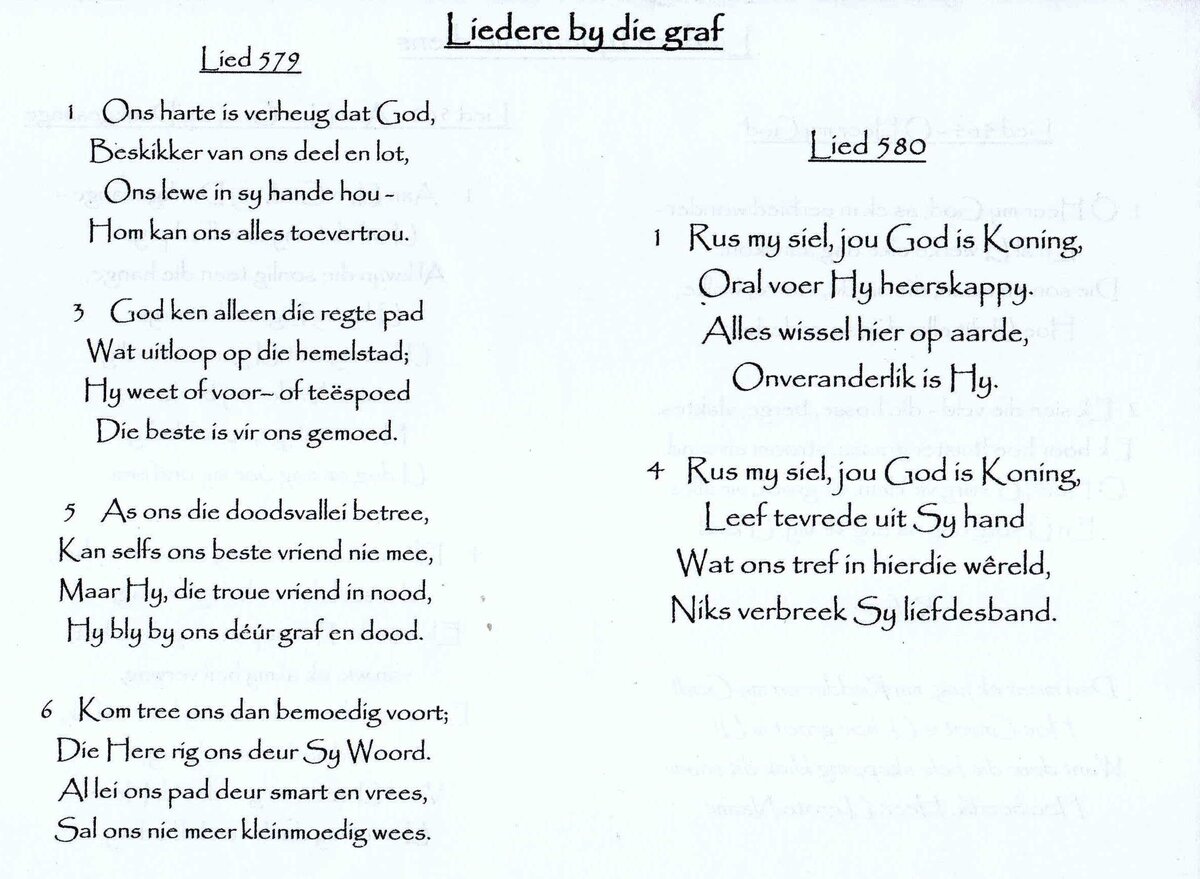 Liedere by die graf
Lied 579
1 Ons harte is verheug dat God,
Beskikker van ons deel en lot,
Ons lewe in sy hande hou -
Hom kan ons alles toevertrou.
3 God ken alleen die regte pad
Wat uitloop op die hemelstad;
Hy weet of voor– of teëspoed
Die beste is vir ons gemoed.
5 As ons die doodsvallei betree,
Kan selfs ons beste vriend nie mee,
Maar Hy, die troue vriend in nood,
Hy bly by ons déúr graf en dood.
6 Kom tree ons dan bemoedig voort;
Die Here rig ons deur Sy Woord.
Al lei ons pad deur smart en vrees,
Sal ons nie meer kleinmoedig wees.
Lied 580
1 Rus my siel, jou God is Koning,
Oral voer Hy heerskappy.
Alles wissel hier op aarde,
Onveranderlik is Hy.
4 Rus my siel, jou God is Koning,
Leef tevrede uit Sy hand
Wat ons tref in hierdie wêreld,
Niks verbreek Sy liefdesband.